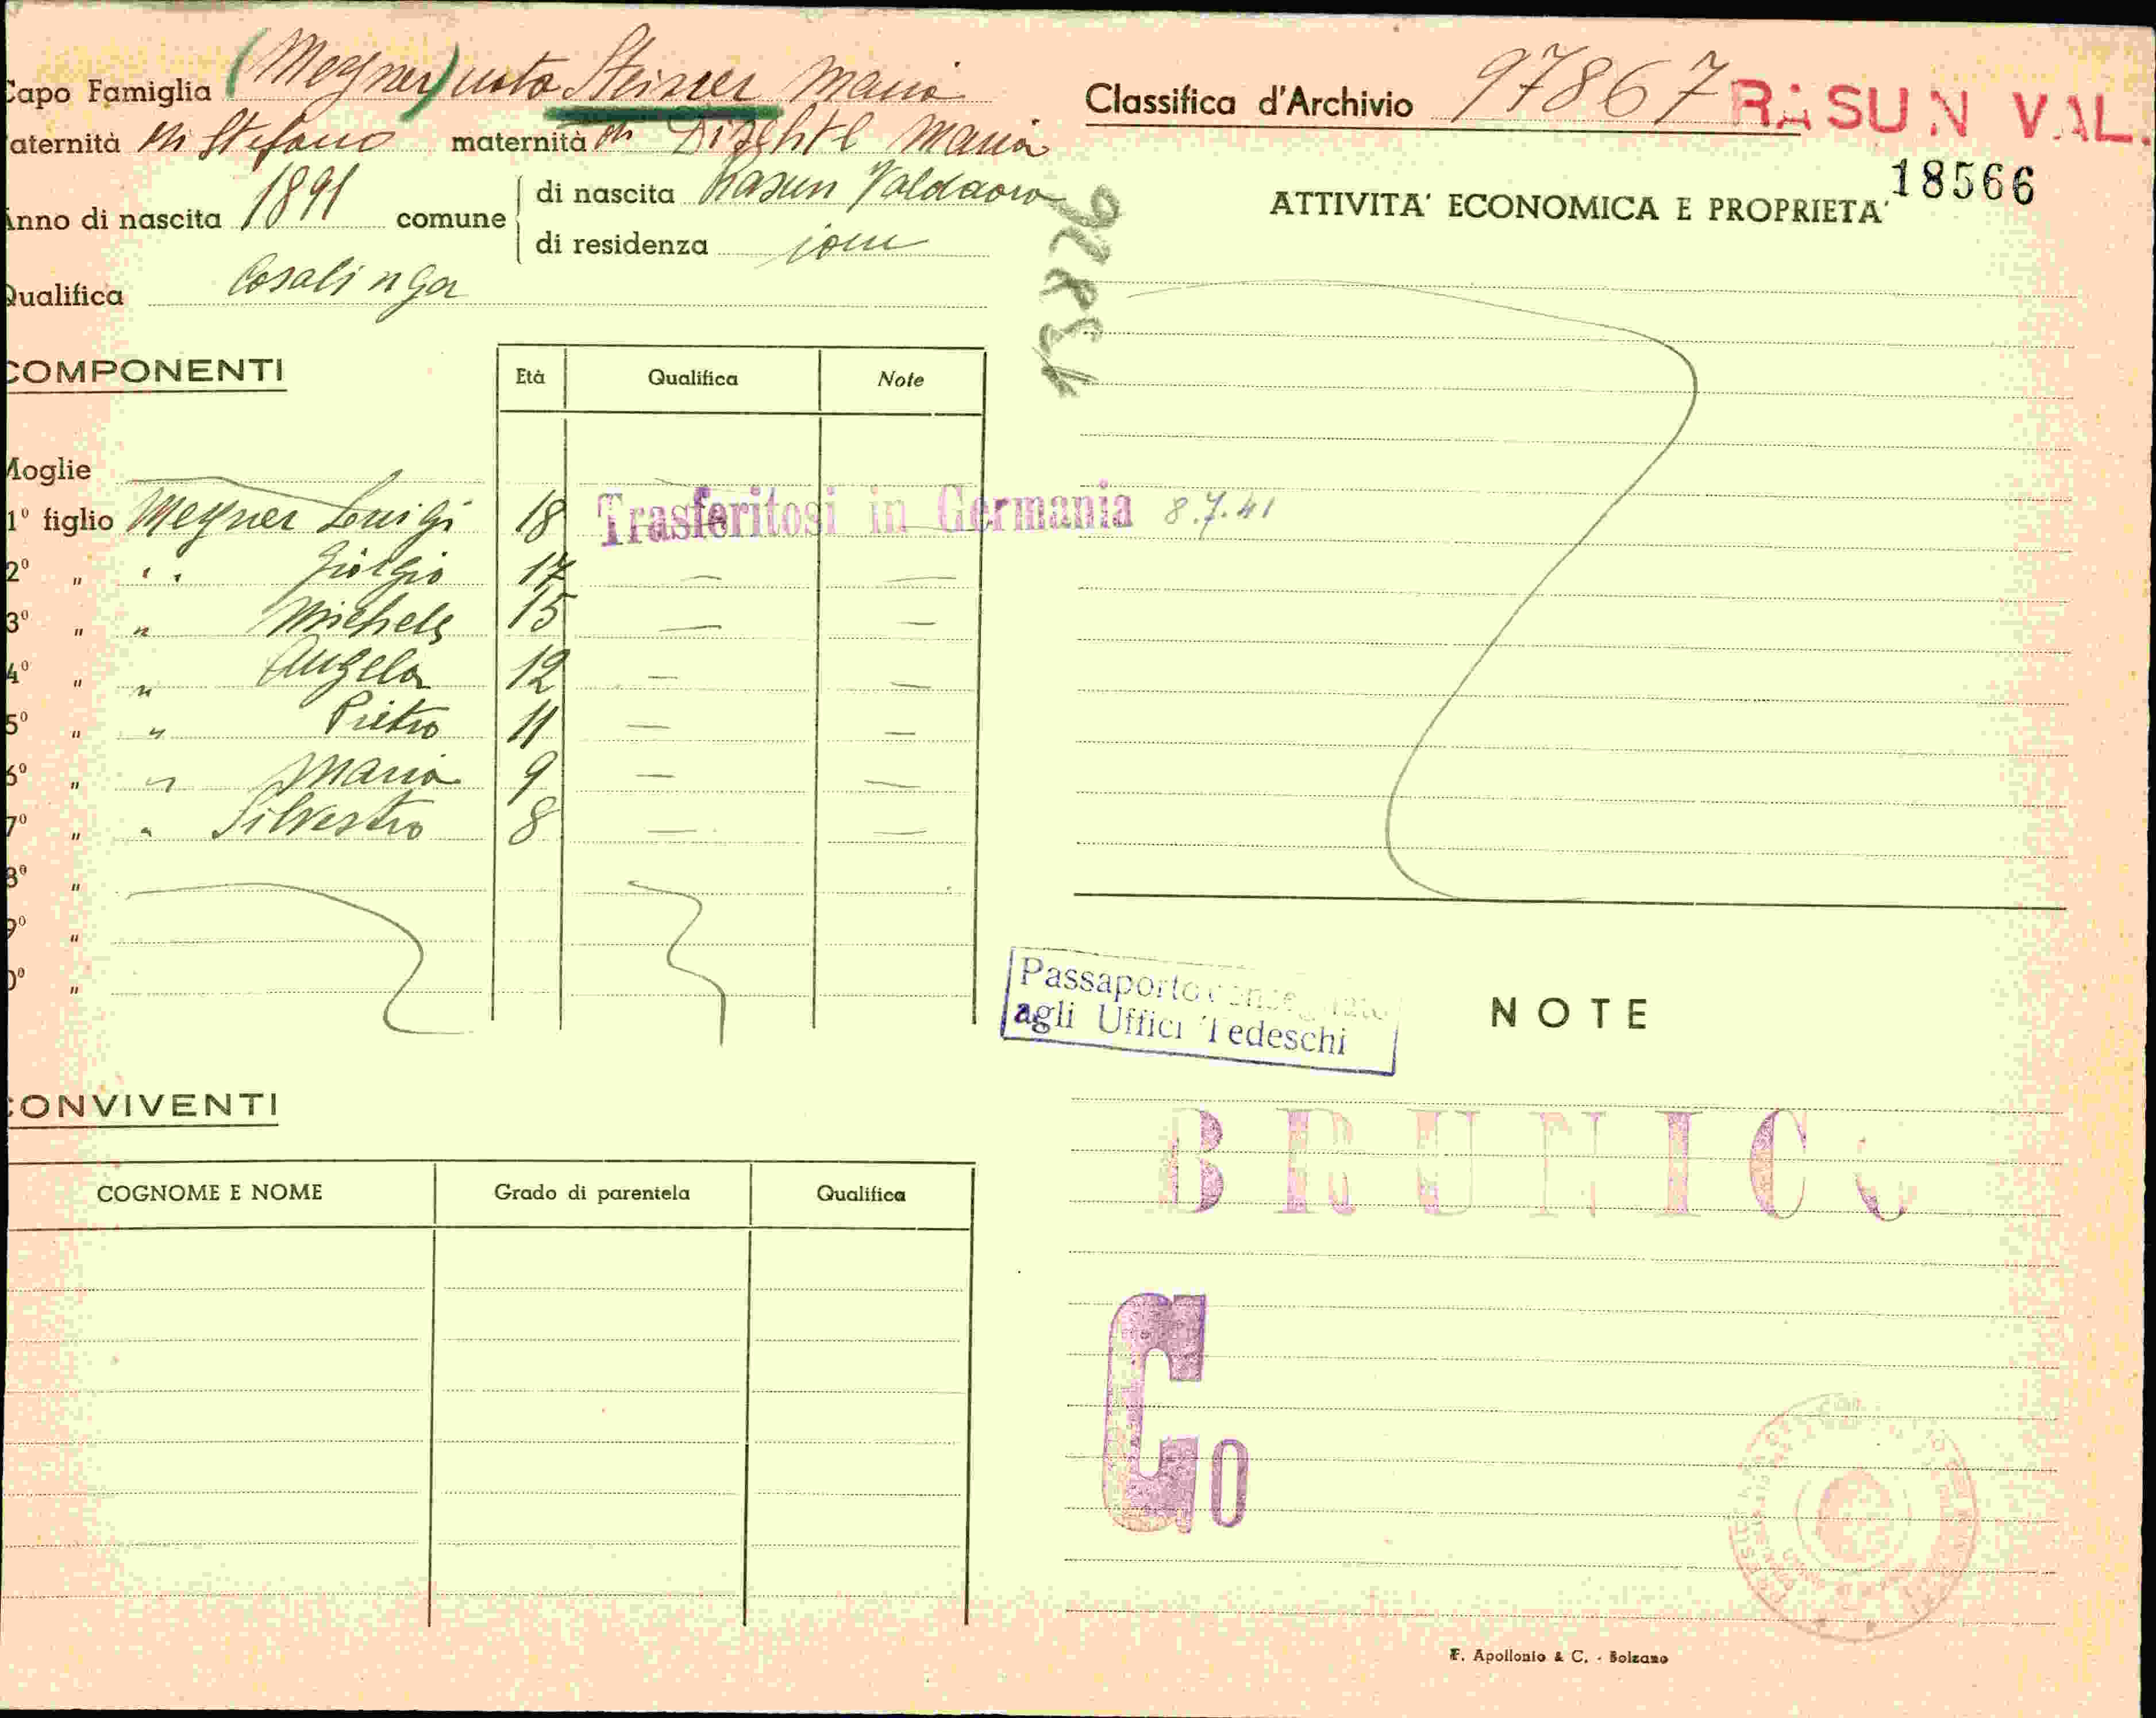 Capo Famiglia (Meyner) nata Steiner Maria
aternità di Stefano maternità di Maria
Anno di nascita 1891 comune di nascita Rasun Valdaora
di residenza
Qualifica Casalinga
Classifica d'Archivio 97867 RASUN VAL.
18566
ATTIVITA' ECONOMICA E PROPRIETA'
COMPONENTI
Età Qualifica Note
Moglie
1º figlio Meyner Luigi 18 Trasferitosi in Germania 8.7.41
2º " " Giorgio 17 — —
3º " " Michele 15 — —
4º " " Angela 12 — —
5º " " Pietro 11 — —
6º " " Maria 9 — —
7º " " Silvestro 8 — —
8º "
9º "
0º "
Passaporto consegnato
agli Uffici Tedeschi
NOTE
BRUNICO
Go
CONVIVENTI
COGNOME E NOME Grado di parentela Qualifica
F. Apollonio & C. - Bolzano